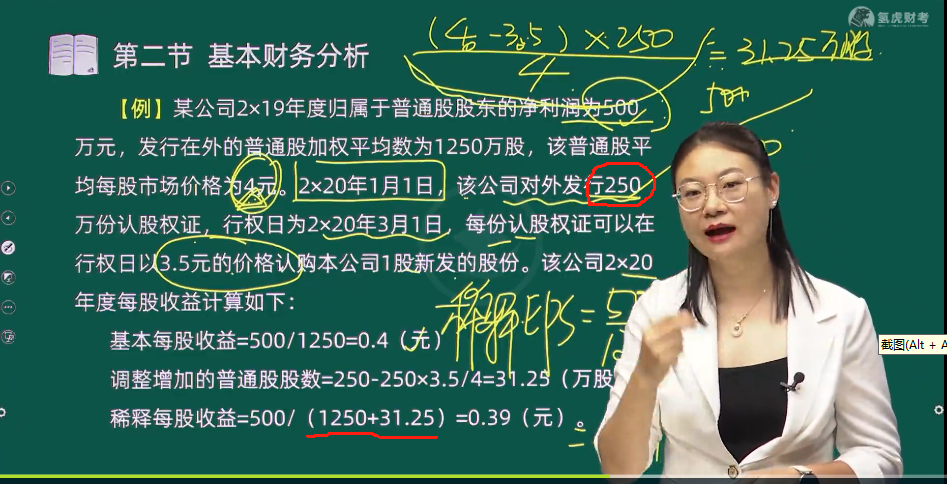 氢虎财考
(4 -3.5)×250
4
=31.25万股
第二节 基本财务分析
【例】某公司2×19年度归属于普通股股东的净利润为500
万元，发行在外的普通股加权平均数为1250万股，该普通股平
均每股市场价格为4元。2×20年1月1日，该公司对外发行250
万份认股权证，行权日为2×20年3月1日，每份认股权证可以在
行权日以3.5元的价格认购本公司1股新发的股份。该公司2×20
年度每股收益计算如下：
稀释EPS=
基本每股收益=500/1250=0.4（元）
调整增加的普通股股数=250-250×3.5/4=31.25（万股
稀释每股收益=500/（1250+31.25）=0.39（元）。
截图(Alt + A